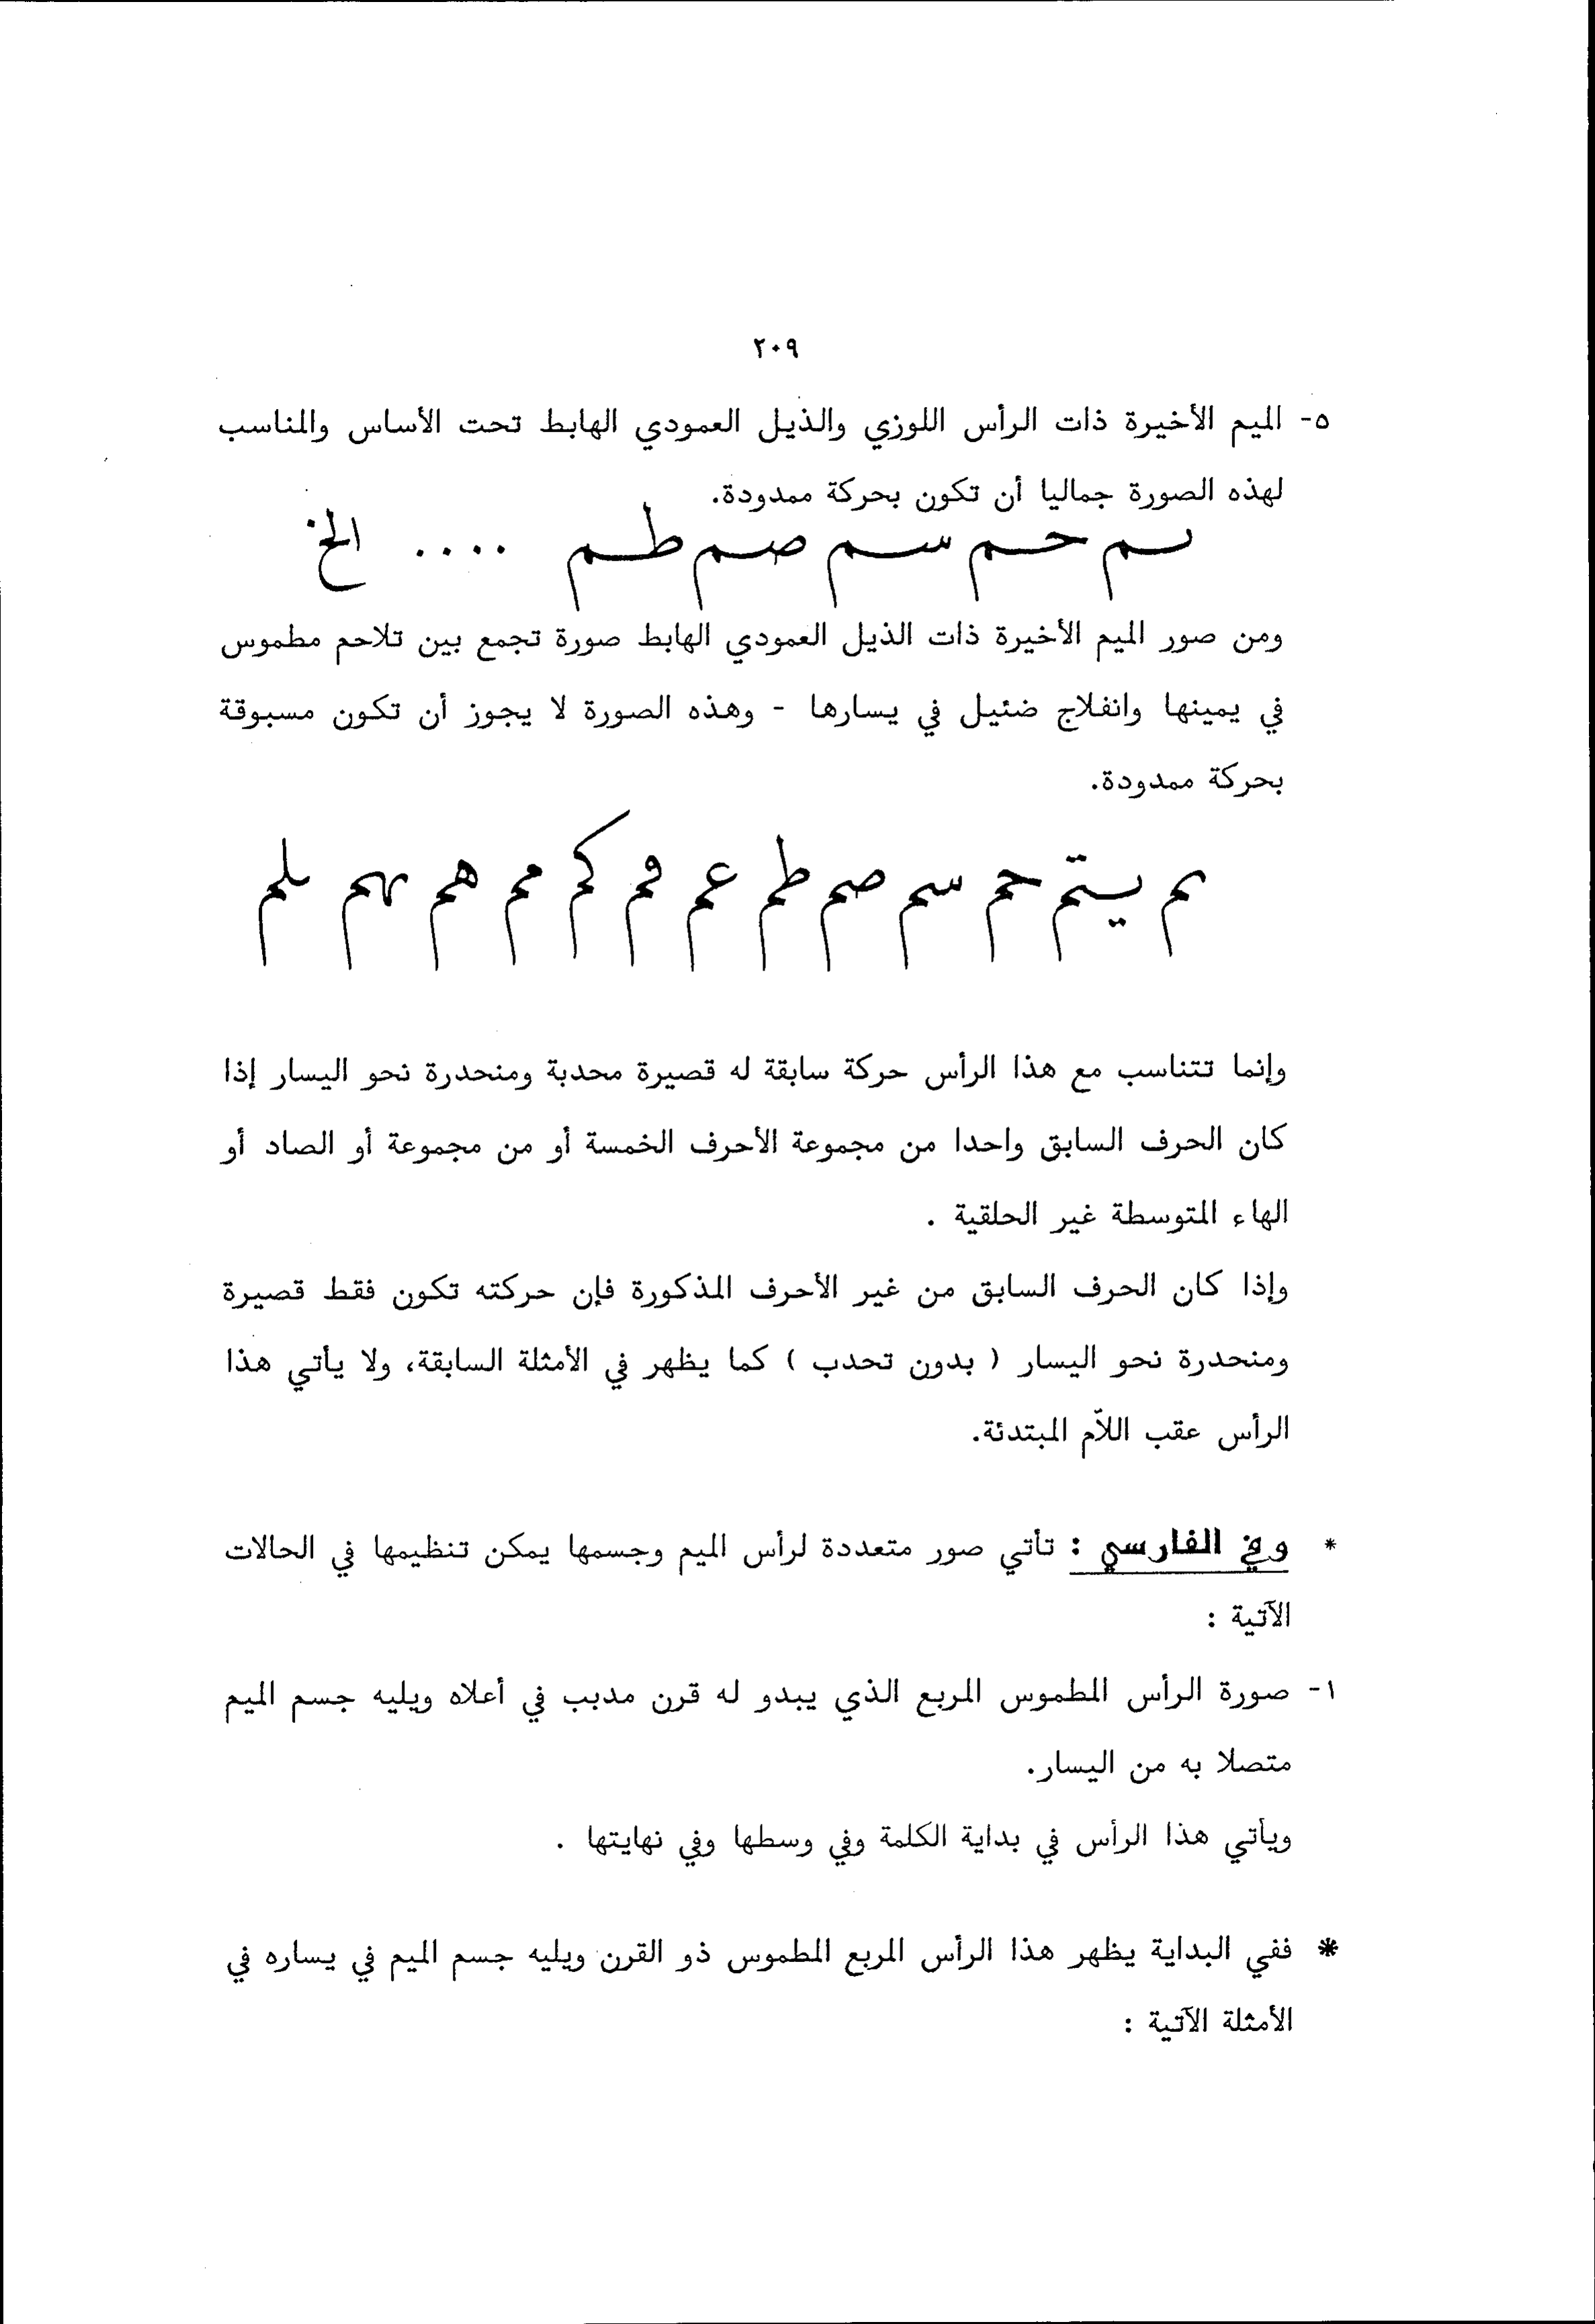 ٢٠٩
٥- الميم الأخيرة ذات الرأس اللوزي والذيل العمودي الهابط تحت الأساس والمناسب
لهذه الصورة جماليا أن تكون بحركة ممدودة.
ىـم حـم سـم صـم طـم .... الخ
ومن صور الميم الأخيرة ذات الذيل العمودي الهابط صورة تجمع بين تلاحم مطموس
في يمينها وانفلاج ضئيل في يسارها - وهذه الصورة لا يجوز أن تكون مسبوقة
بحركة ممدودة.
ىم يستم حم سم صم طم عم ڡم كم مم هم ىهم ىلم
وإنما تتناسب مع هذا الرأس حركة سابقة له قصيرة محدبة ومنحدرة نحو اليسار إذا
كان الحرف السابق واحدا من مجموعة الأحرف الخمسة أو من مجموعة أو الصاد أو
الهاء المتوسطة غير الحلقية .
وإذا كان الحرف السابق من غير الأحرف المذكورة فإن حركته تكون فقط قصيرة
ومنحدرة نحو اليسار ( بدون تحدب ) كما يظهر في الأمثلة السابقة، ولا يأتي هذا
الرأس عقب اللاّم المبتدئة.
* وفي الفارسي : تأتي صور متعددة لرأس الميم وجسمها يمكن تنظيمها في الحالات
الآتية :
١- صورة الرأس المطموس المربع الذي يبدو له قرن مدبب في أعلاه ويليه جسم الميم
متصلا به من اليسار.
ويأتي هذا الرأس في بداية الكلمة وفي وسطها وفي نهايتها .
* ففي البداية يظهر هذا الرأس المربع المطموس ذو القرن ويليه جسم الميم في يساره في
الأمثلة الآتية :